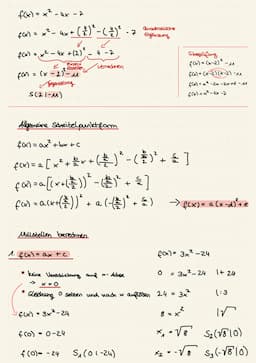 f(x) = x² - 4x - 7
f(x) = x² - 4x + (4/2)² - (4/2)² - 7
Quadratische Ergänzung
f(x) = x² - 4x + (2)² - 4 - 7
f(x) = (x - 2)² - 11
S(2|-11)
Überprüfung
f(x) = (x-2)² - 11
f(x) = (x-2)(x-2) - 11
f(x) = x² - 2x - 2x + 4 - 11
f(x) = x² - 4x - 7
Allgemeine Scheitelpunktform
f(x) = ax² + bx + c
f(x) = a [ x² + b/a x + (b/a/2)² - (b/a/2)² + c/a ]
f(x) = a [ (x + (b/a/2))² - (b/a/2)² + c/a ]
f(x) = a (x + (b/a/2))² + a (-(b/a/2)² + c/a)
→ f(x) = a(x-d)² + e
Nullstellen berechnen
1. f(x) = ax + c
* keine Verschiebung auf x-Achse
→ x = 0
* Gleichung 0 setzen und nach x auflösen
f(x) = 3x² - 24
f(0) = 0 - 24
f(0) = -24 S₁(0|-24)
f(x) = 3x² - 24
0 = 3x² - 24 |+ 24
24 = 3x² |:3
8 = x² |√
x₁ = √8 S₂(√8|0)
x₂ = -√8 S₃(-√8|0)